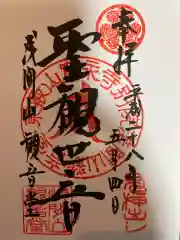 奉拝
平成二十八年
五月四日
聖観世音
浅間山観音堂